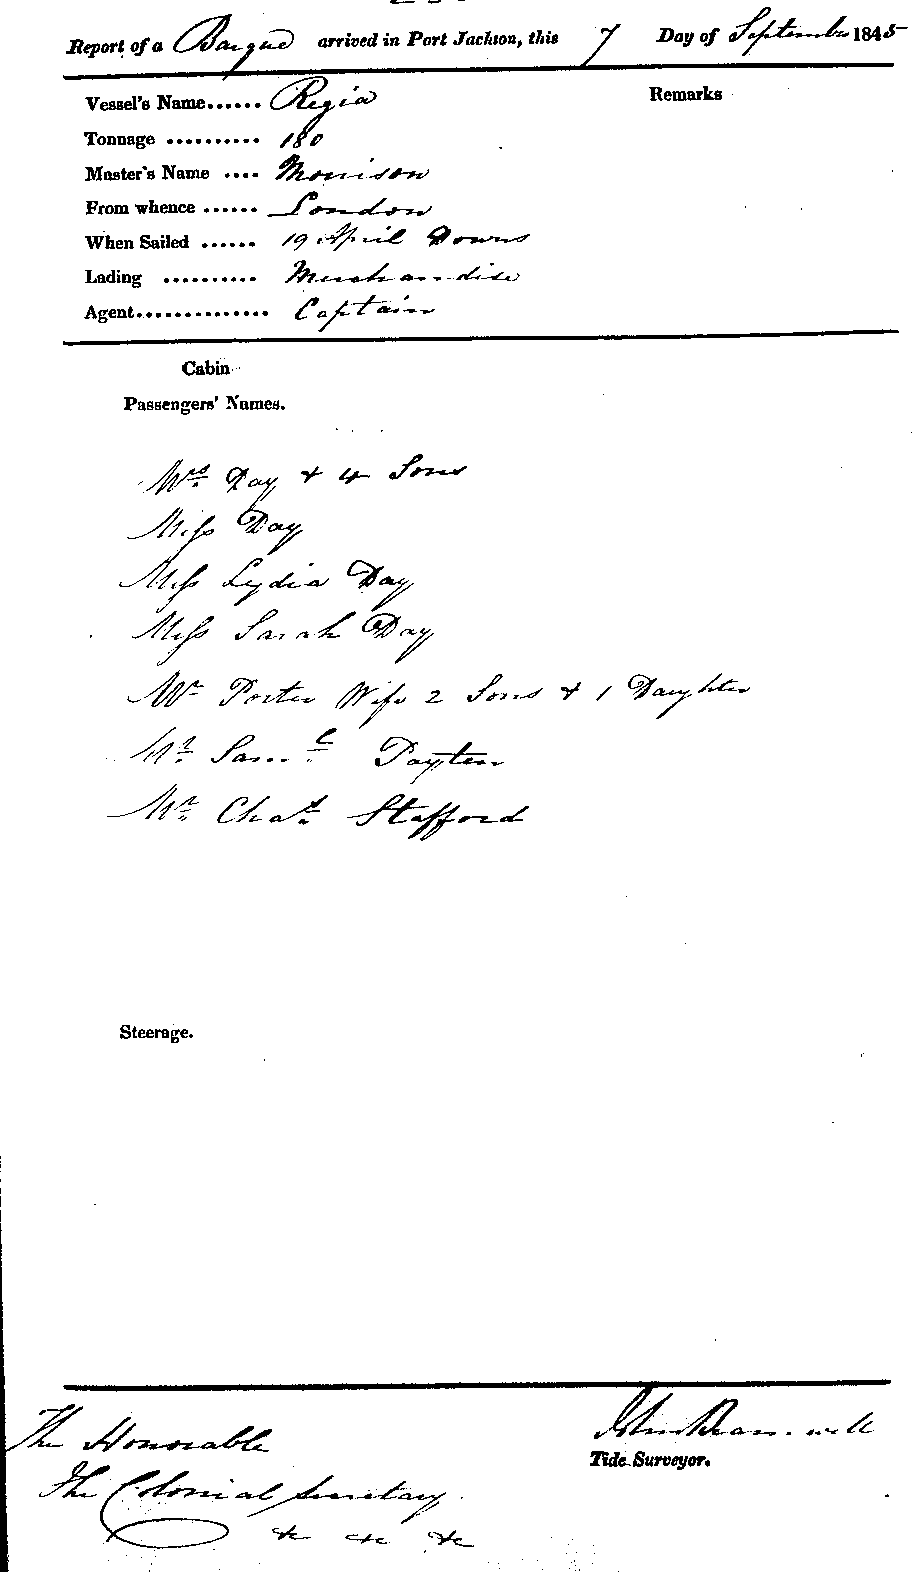 Report of a Barque arrived in Port Jackson, this 7 Day of September 1845
Vessel's Name...... Regia
Remarks
Tonnage .......... 180
Master's Name .... Morrison
From whence ...... London
When Sailed ...... 19 April Downs
Lading .......... Merchandise
Agent.............. Captain
Cabin
Passengers' Names.
Mrs Day & 4 Sons
Miss Day
Miss Lydia Day
Miss Sarah Day
Mr Porter Wife 2 Sons & 1 Daughter
Mr Saml Payten
Mr Chas Stafford
Steerage.
The Honorable
John Bramwell
Tide Surveyor.
The Colonial Secretary
&c &c &c